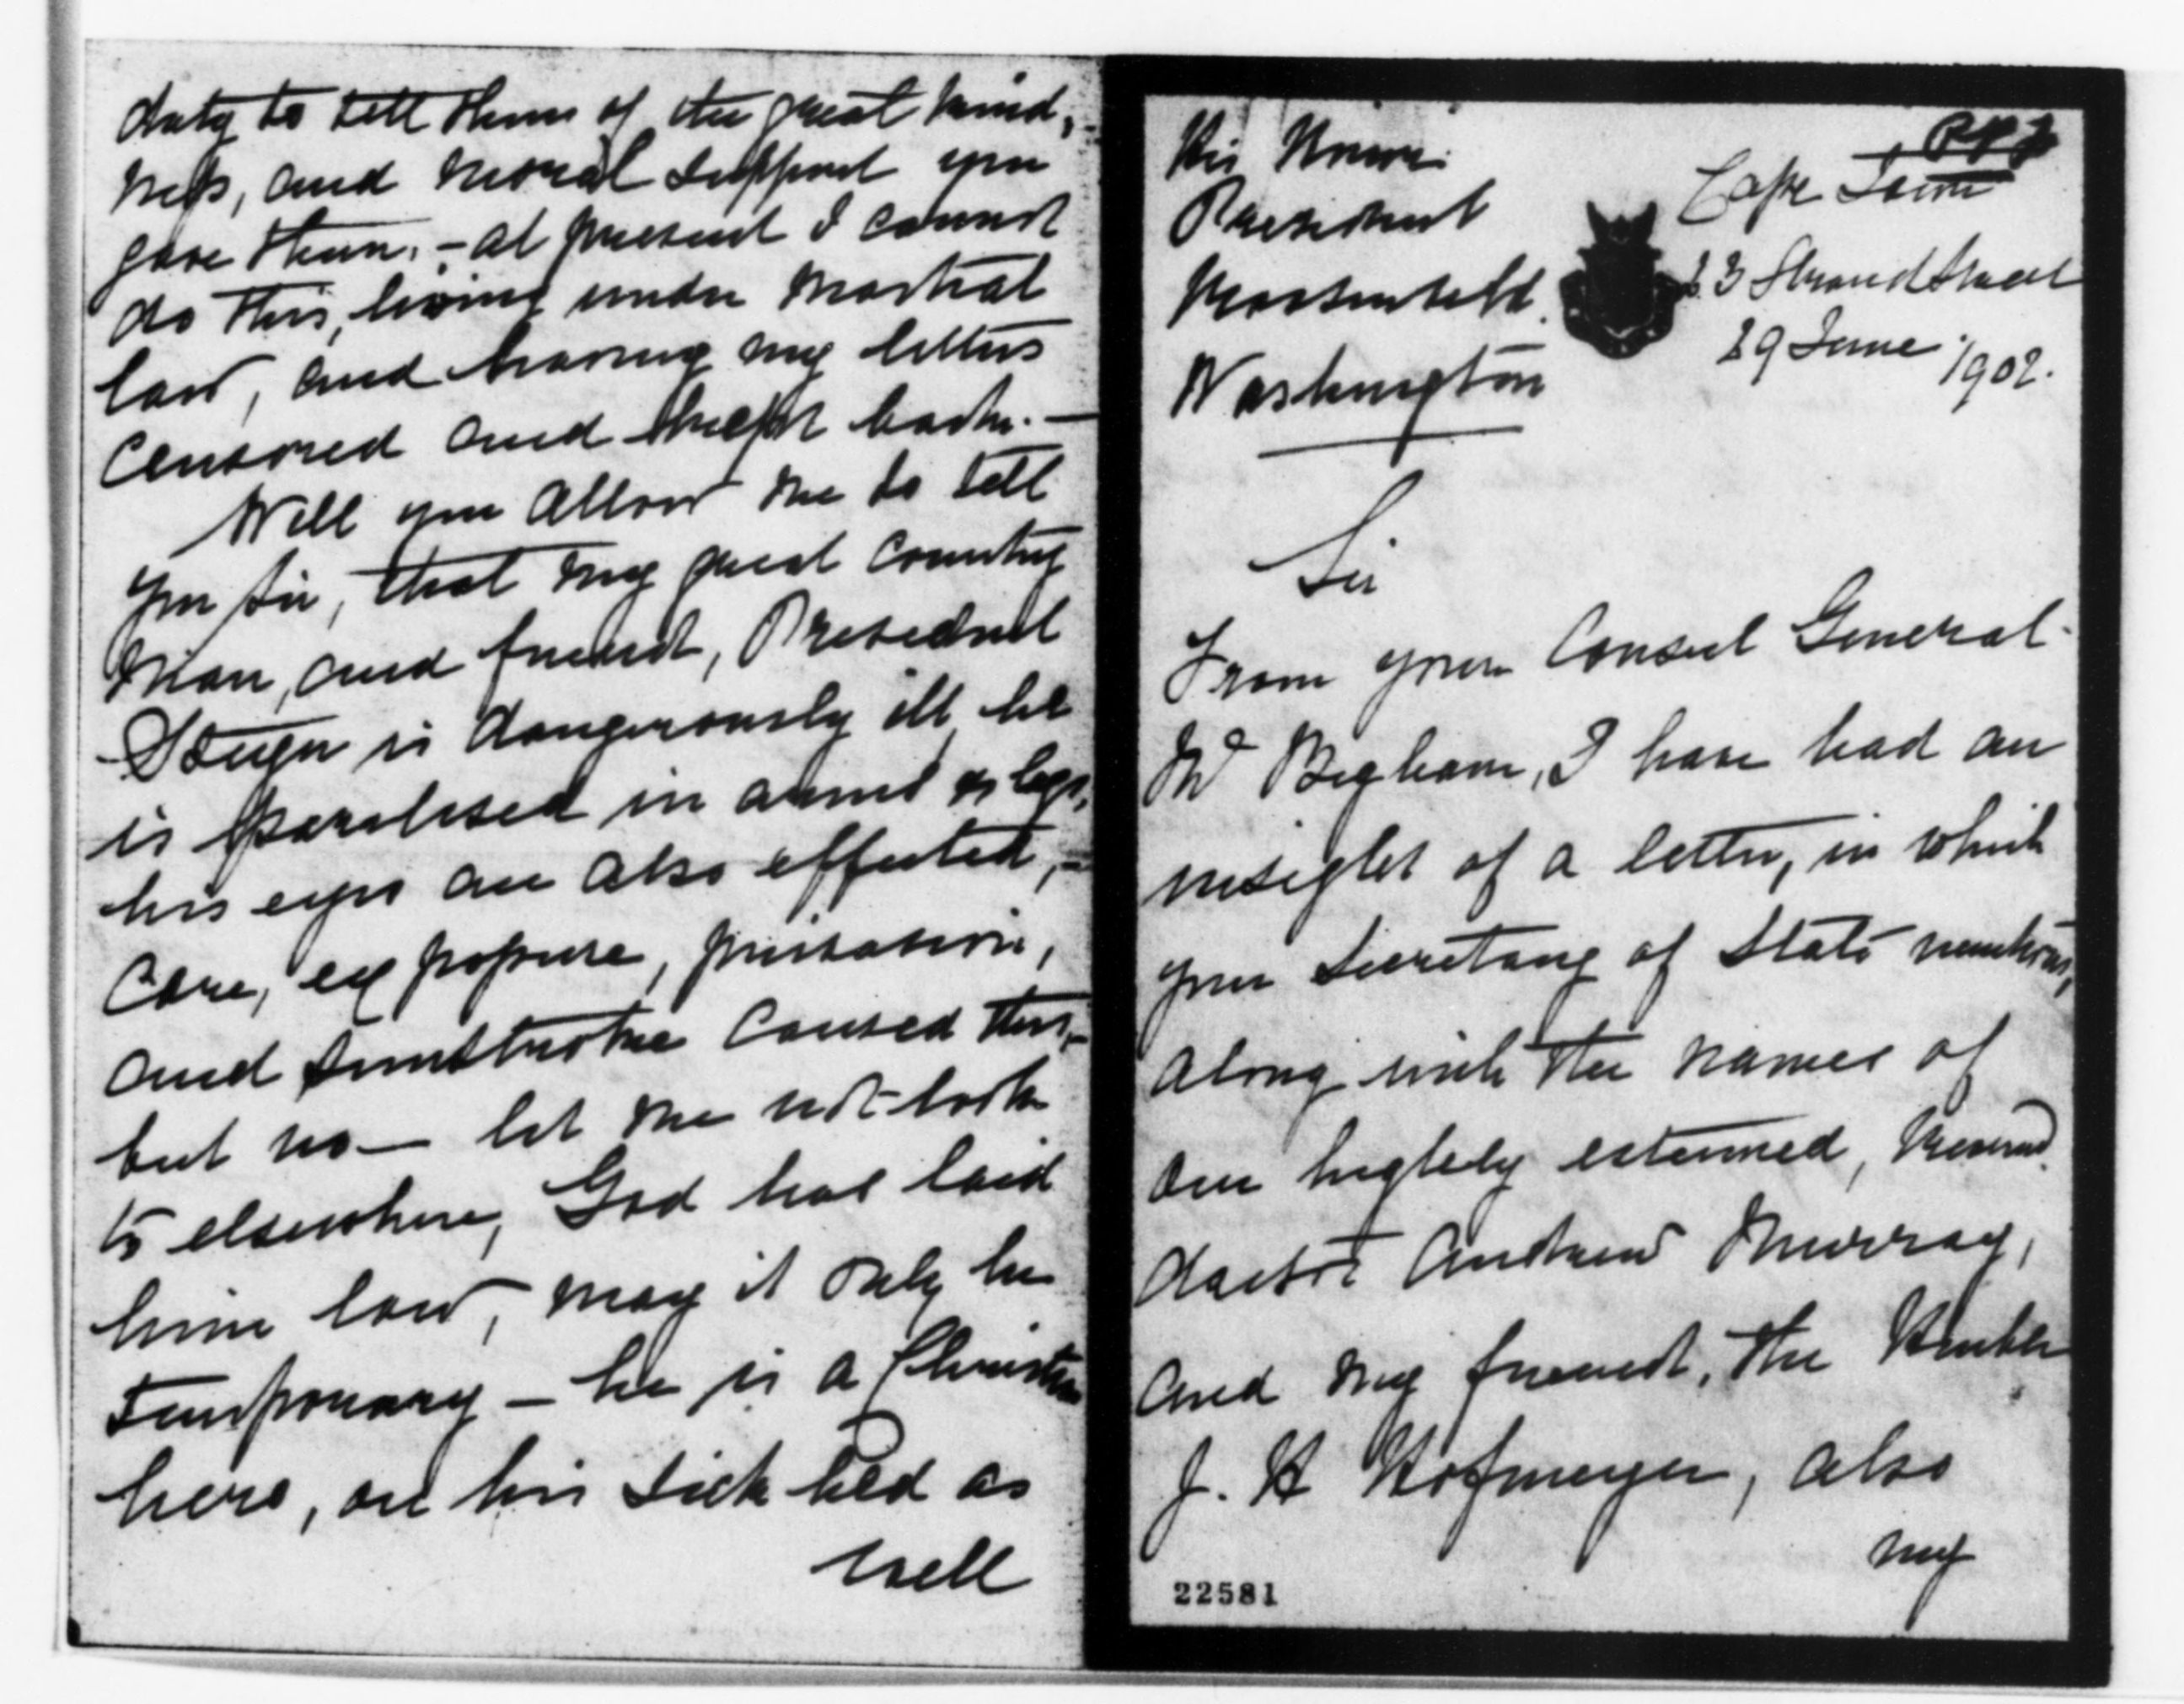 duty to tell them of the great kind,-
ness, and moral support you
gave them. - at present I cannot
do this, living under martial
law, and having my letters
censored and kept back. -
Will you allow me to tell
you Sir, that my great country
man, and friend, President
Steyn is dangerously ill he
is paralised in arms & legs,
his eyes are also effected, -
Care, exposure, privation,
and sunstroke caused this, -
but no - let me not look
to elsewhere, God has laid
him low, may it only be
temporary - he is a Christian
hero, on his sick bed as
well
His Honor
President
Roosevelt.
Washington
PPF
Cape Town
23 Strand Street
29 June 1902.
Sir
From your Consul General
Mr Bigham, I have had an
insight of a letter, in which
your Secretary of State mentions,
along with the names of
our highly esteemed, Reverend
doctor Andrew Murray,
and my friend, the Honble
J. H Hofmeyer, also
my
22581